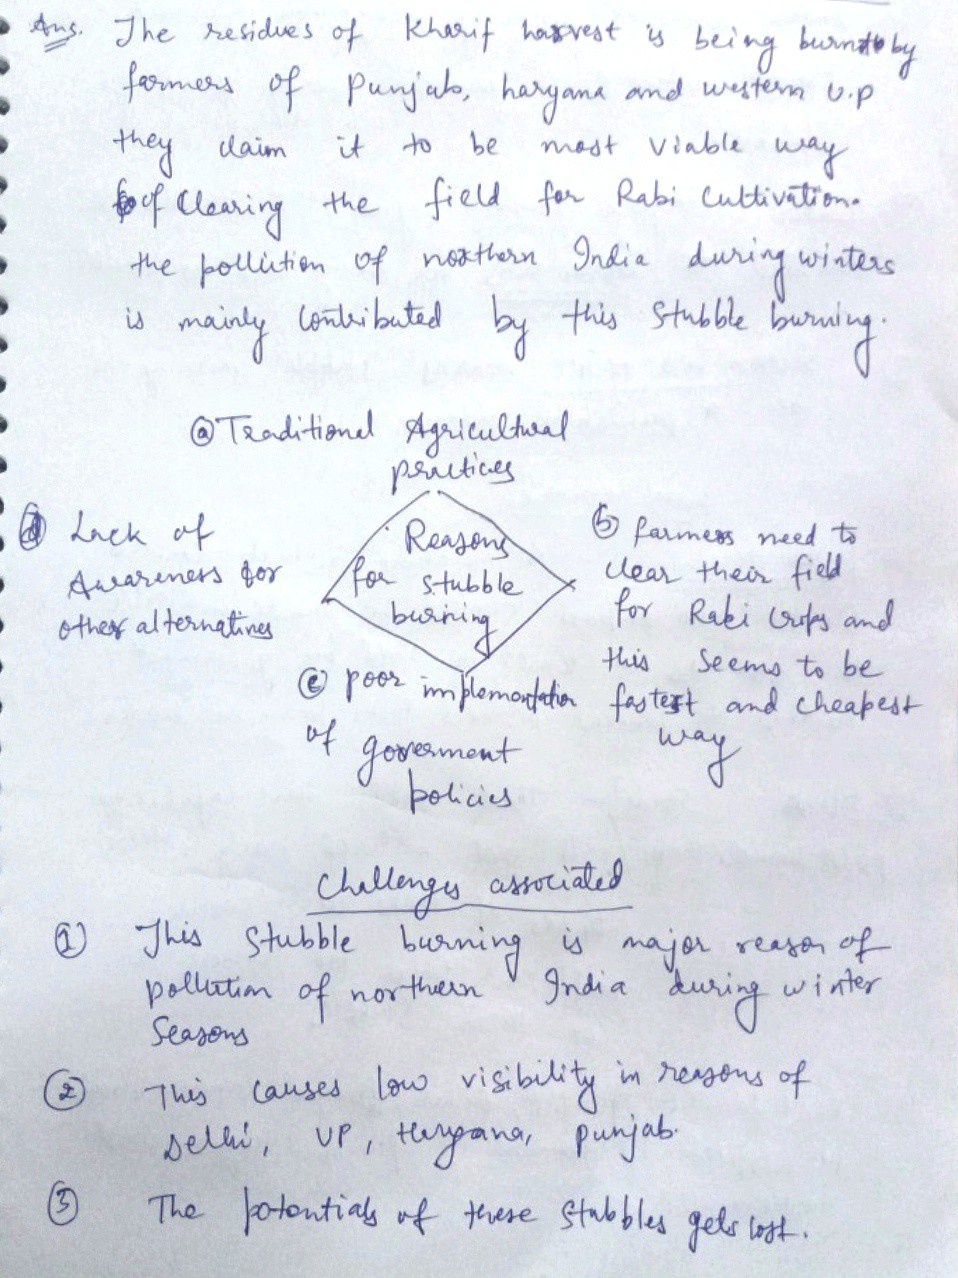 Ans. The residues of Kharif harvest is being burnt by
farmers of Punjab, haryana and western U.P
they claim it to be most viable way
of Clearing the field for Rabi Cultivation.
the pollution of northern India during winters
is mainly Contributed by this Stubble burning.
ⓐ Traditional Agricultural
practices
Reasons
for stubble
burning
ⓑ farmers need to
clear their field
for Rabi Crops and
this Seems to be
fastest and cheapest
way
ⓓ Lack of
Awareness for
other alternatives
ⓒ poor implementation
of goverment
policies
Challenges associated
① This Stubble burning is major reason of
pollution of northern India during winter
Seasons
② This causes low visibility in reasons of
Delhi, UP, Haryana, Punjab.
③ The potentials of these Stubbles gets lost.